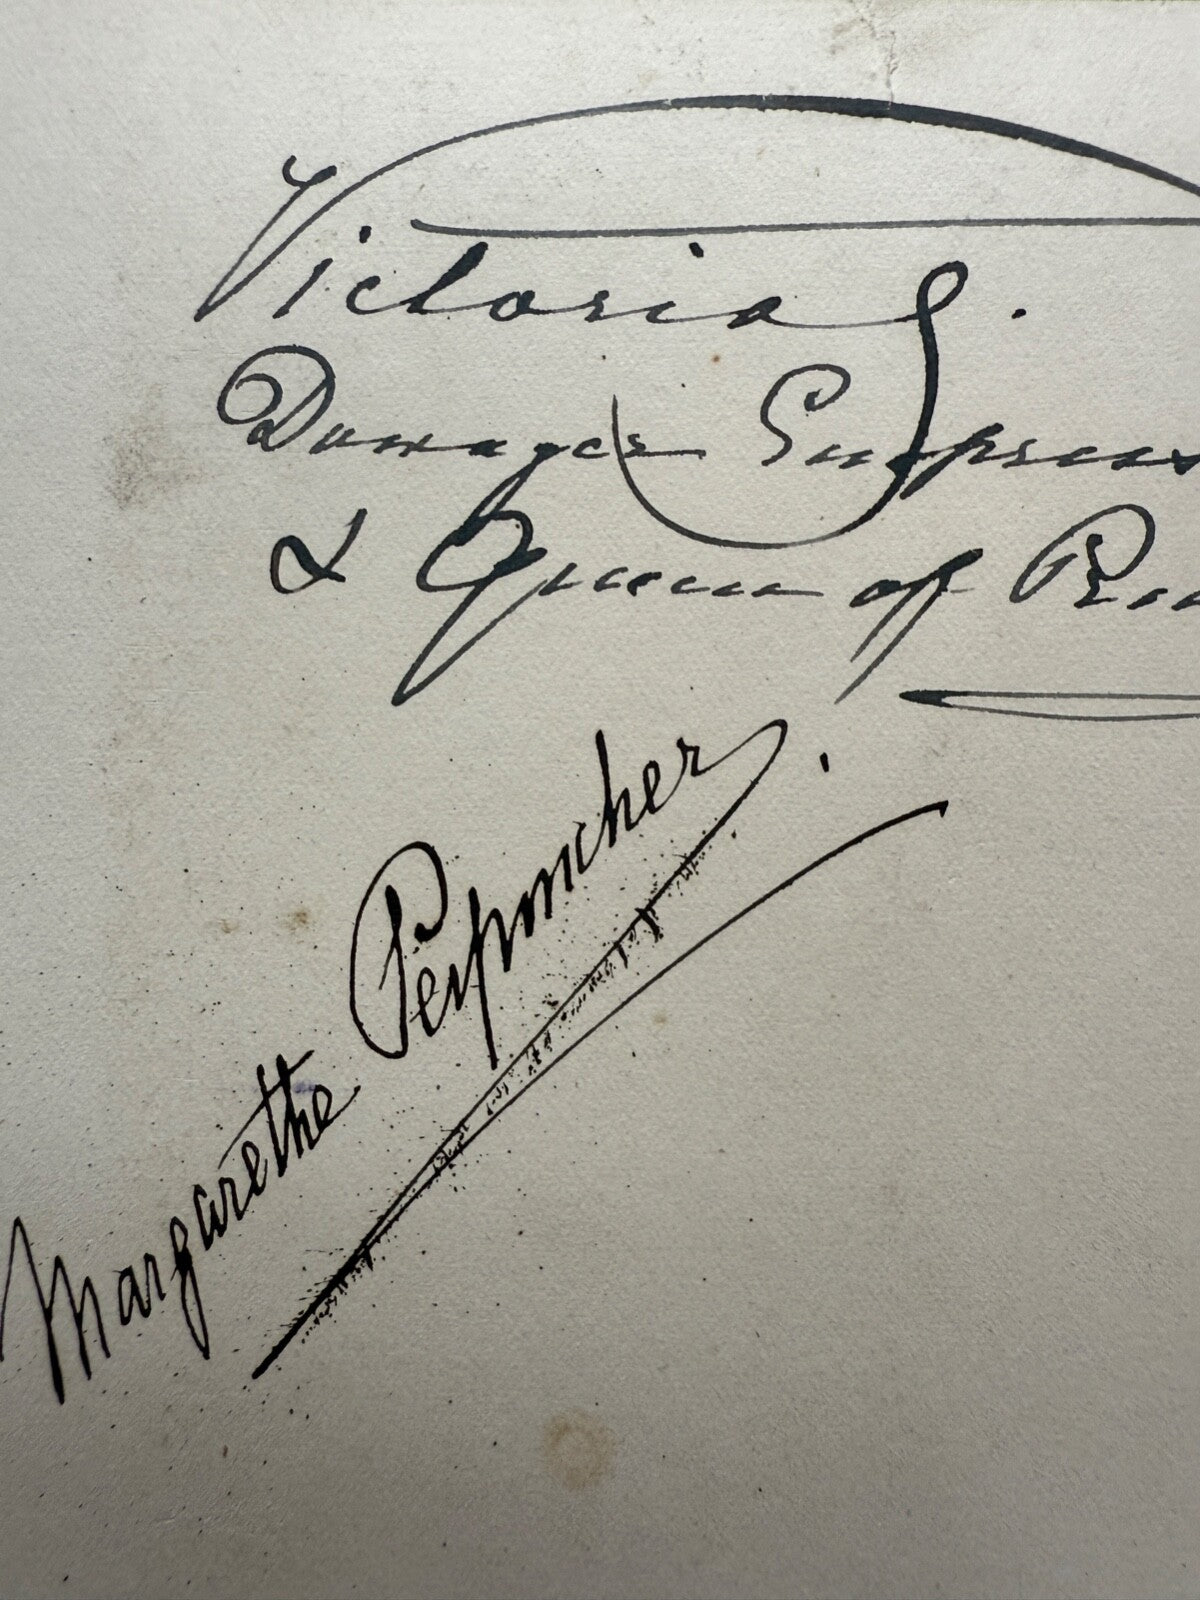 Victoria
Dowager Empress
& Queen of Pru
Margarethe Perponcher.